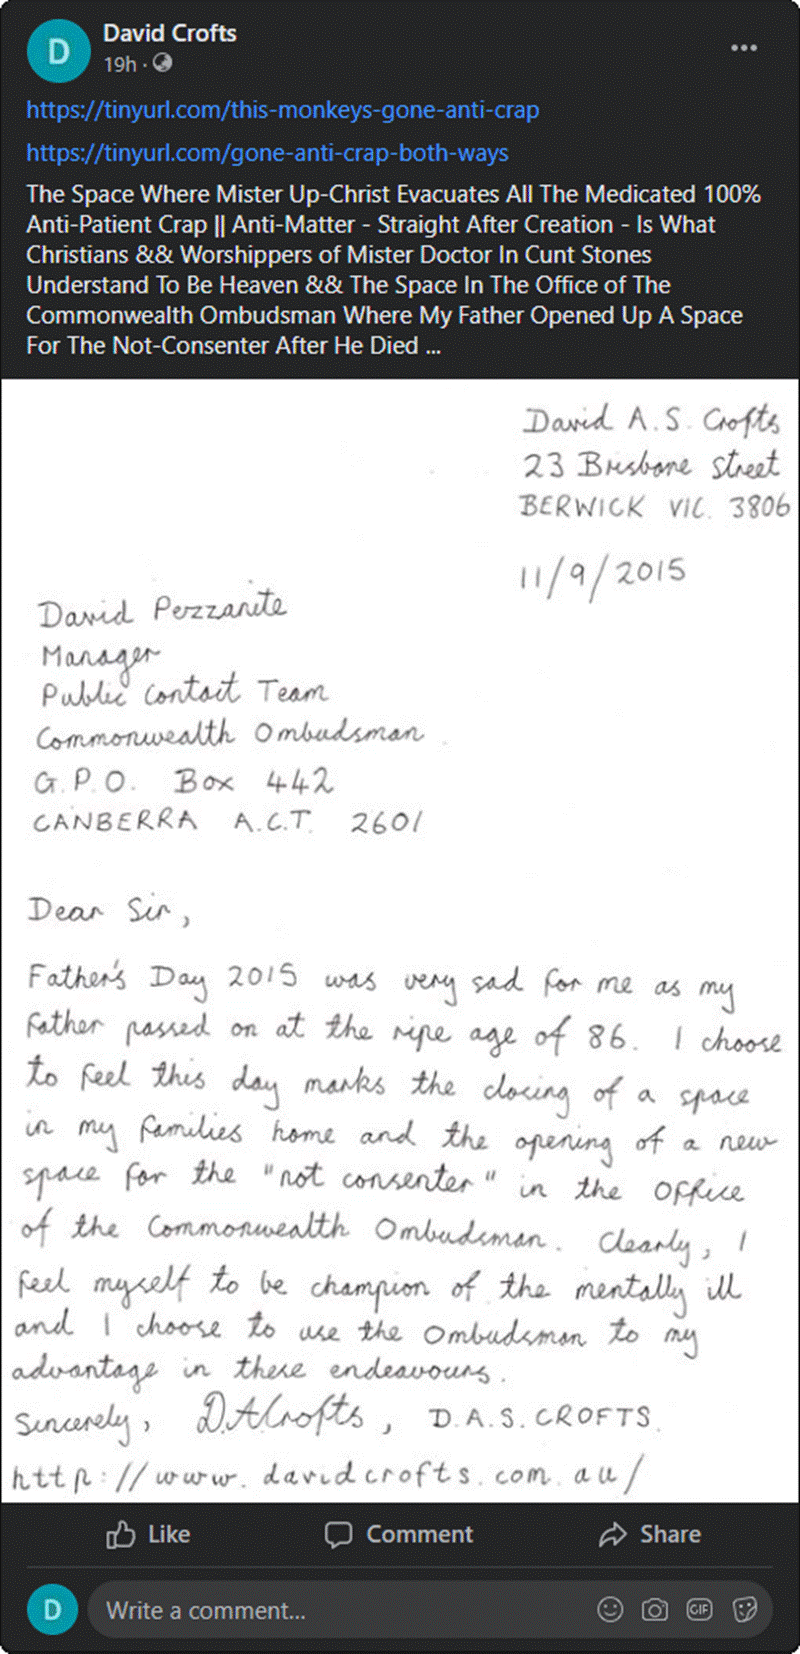 David Crofts
19h ·
https://tinyurl.com/this-monkeys-gone-anti-crap
https://tinyurl.com/gone-anti-crap-both-ways
The Space Where Mister Up-Christ Evacuates All The Medicated 100%
Anti-Patient Crap || Anti-Matter - Straight After Creation - Is What
Christians && Worshippers of Mister Doctor In Cunt Stones
Understand To Be Heaven && The Space In The Office of The
Commonwealth Ombudsman Where My Father Opened Up A Space
For The Not-Consenter After He Died ...
David A.S. Crofts
23 Brisbane Street
BERWICK VIC. 3806
11/9/2015
David Pezzanite
Manager
Public Contact Team
Commonwealth Ombudsman
G.P.O. Box 442
CANBERRA A.C.T. 2601
Dear Sir,
Father's Day 2015 was very sad for me as my
father passed on at the ripe age of 86. I choose
to feel this day marks the closing of a space
in my families home and the opening of a new
space for the "not consenter" in the Office
of the Commonwealth Ombudsman. Clearly, I
feel myself to be champion of the mentally ill
and I choose to use the Ombudsman to my
advantage in these endeavours.
Sincerely, D.A.Crofts, D.A.S. CROFTS.
http://www.davidcrofts.com.au/
Like Comment Share
D Write a comment... GIF